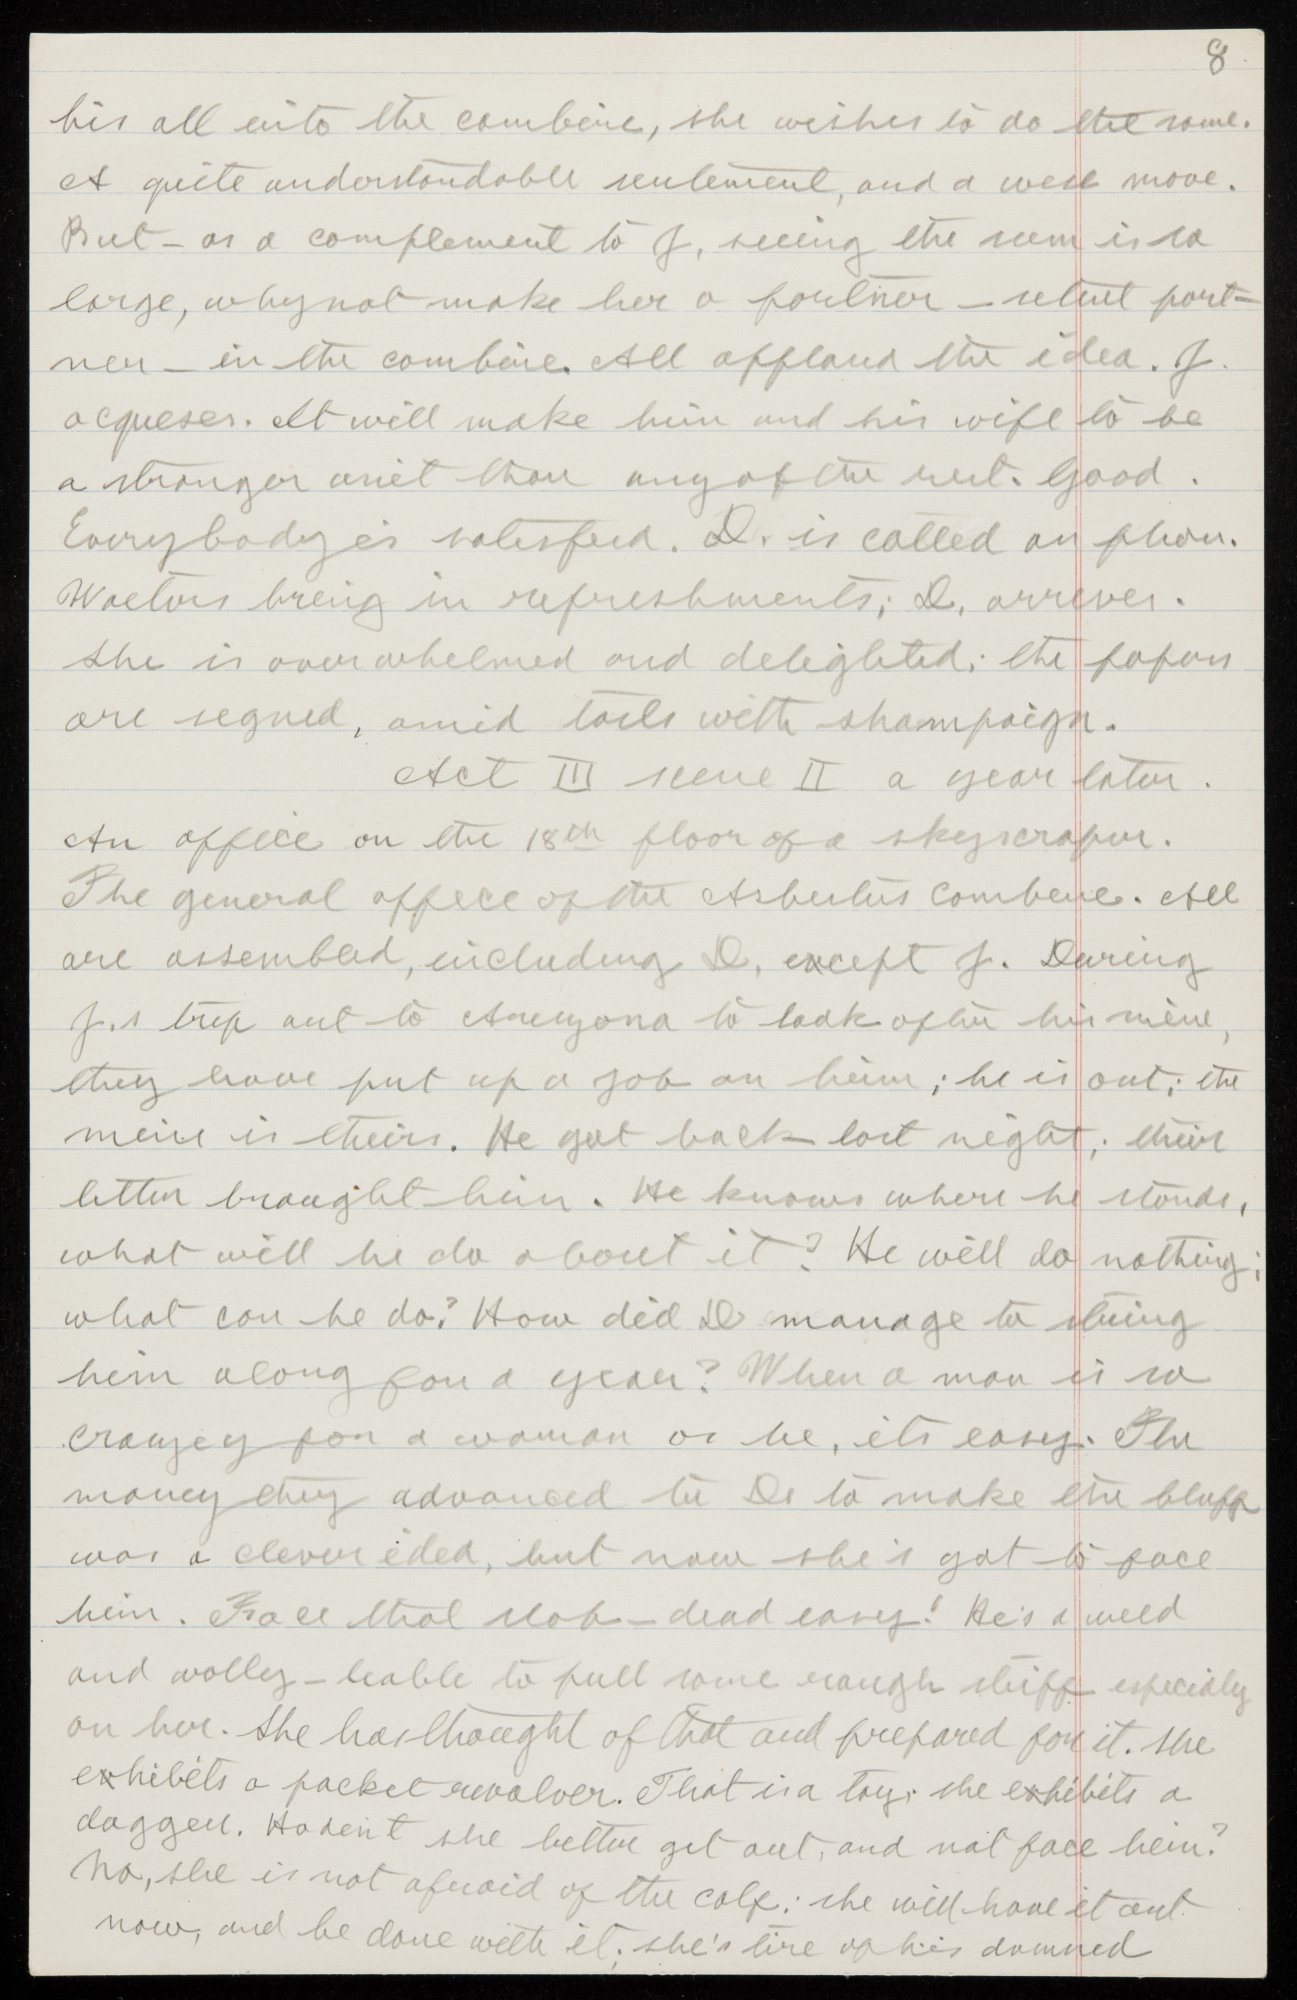 8
his all into the combine, she wishes to do the same.
A quite understandable sentement, and a wise move.
But – as a complement to J, seeing the sum is so
large, why not make her a partner – silent part-
ner – in the combine. All applaud the idea. J.
acqueses. It will make him and his wife to be
a stronger unit than any of the rest. Good.
Everybody is satesfied. D. is called on phon.
Waetors breing in refreshments; D. arrives.
She is overwhelmed and delighted; the papers
are segned, amid tosts with shampaign.
Act III scene II a year later.
An office on the 18th floor of a skyscraper.
The general offece of the Asbestus Combene. All
are assembled, including D. except J. During
J.s trip out to Areyzona to look after his mine,
they have put up a job on him; he is out; the
mine is theirs. He got back last night; their
letter brought him. He knows where he stands,
what will he do about it? He will do nothing;
what can he do? How did D manage to string
him along for a year? When a man is so
crazey for a woman as he, its easy. The
money they advanced to Ds to make the bluff
was a clever idea, but now she's got to face
him. Face that slob – dead easy! He's a weld
and wolley – leable to pull some rough stuff especialy
on her. She has thought of that and prepared for it. She
exhibits a pocket revolver. That is a toy; she exhibits a
dagger. Hadent she better get out, and not face hein?
No, she is not afraid of the calf; she will have it out
now, and be done with it; she's tire of his damned